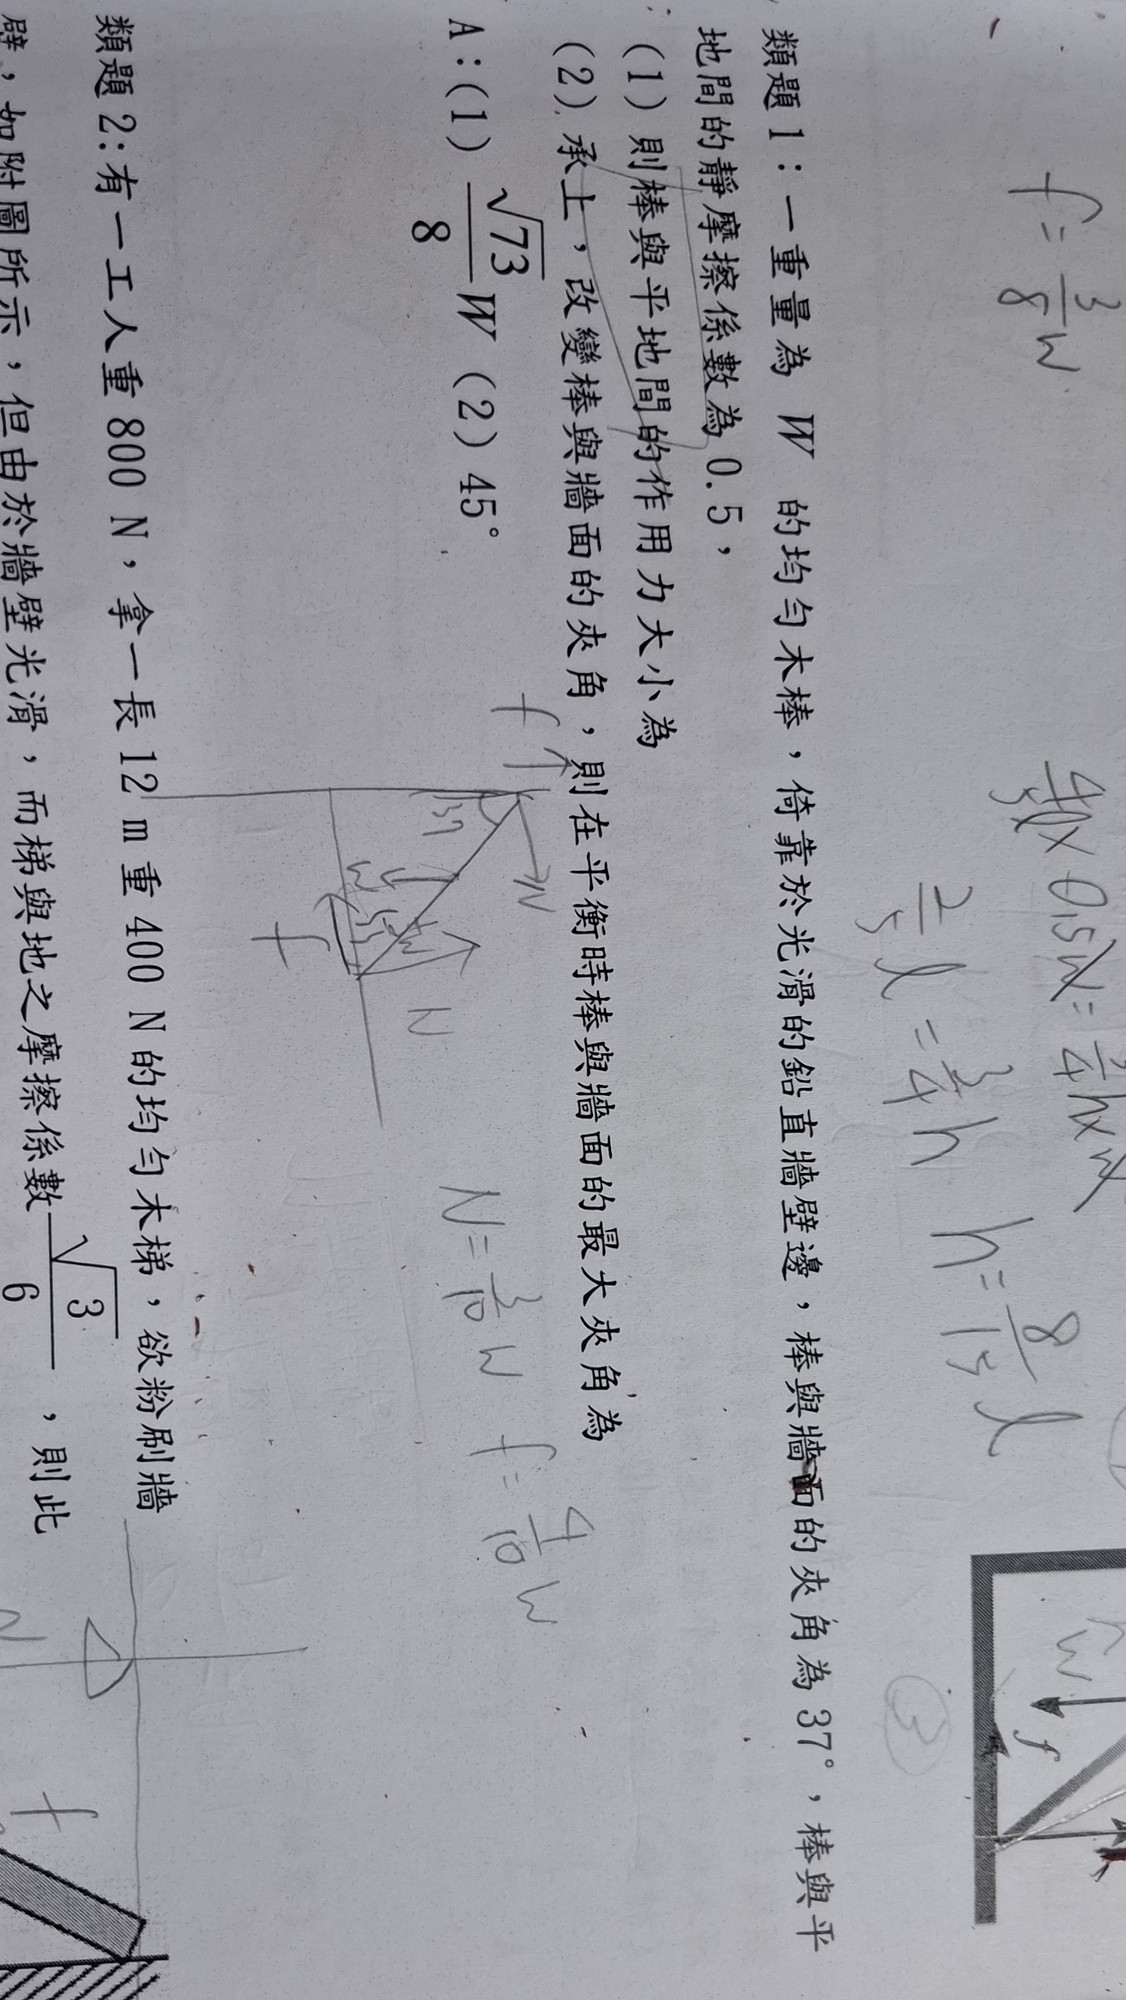 f = 3/8 W
4/5 l × 0.5W = 3/4 h × W
2/5 l = 3/4 h
h = 8/15 l
W
f
③
類題1：一重量為 W 的均勻木棒，倚靠於光滑的鉛直牆壁邊，棒與牆面的夾角為37°，棒與平
地間的靜摩擦係數為0.5，
(1)則棒與平地間的作用力大小為
(2)承上，改變棒與牆面的夾角，則在平衡時棒與牆面的最大夾角為
A：(1) √73/8 W (2) 45°
f
N
37
W
N
f
N = 3/10 W
f = 4/10 W
類題2:有一工人重800 N，拿一長12 m重400 N的均勻木梯，欲粉刷牆
壁，如附圖所示，但由於牆壁光滑，而梯與地之摩擦係數 √3/6 ，則此
N
f